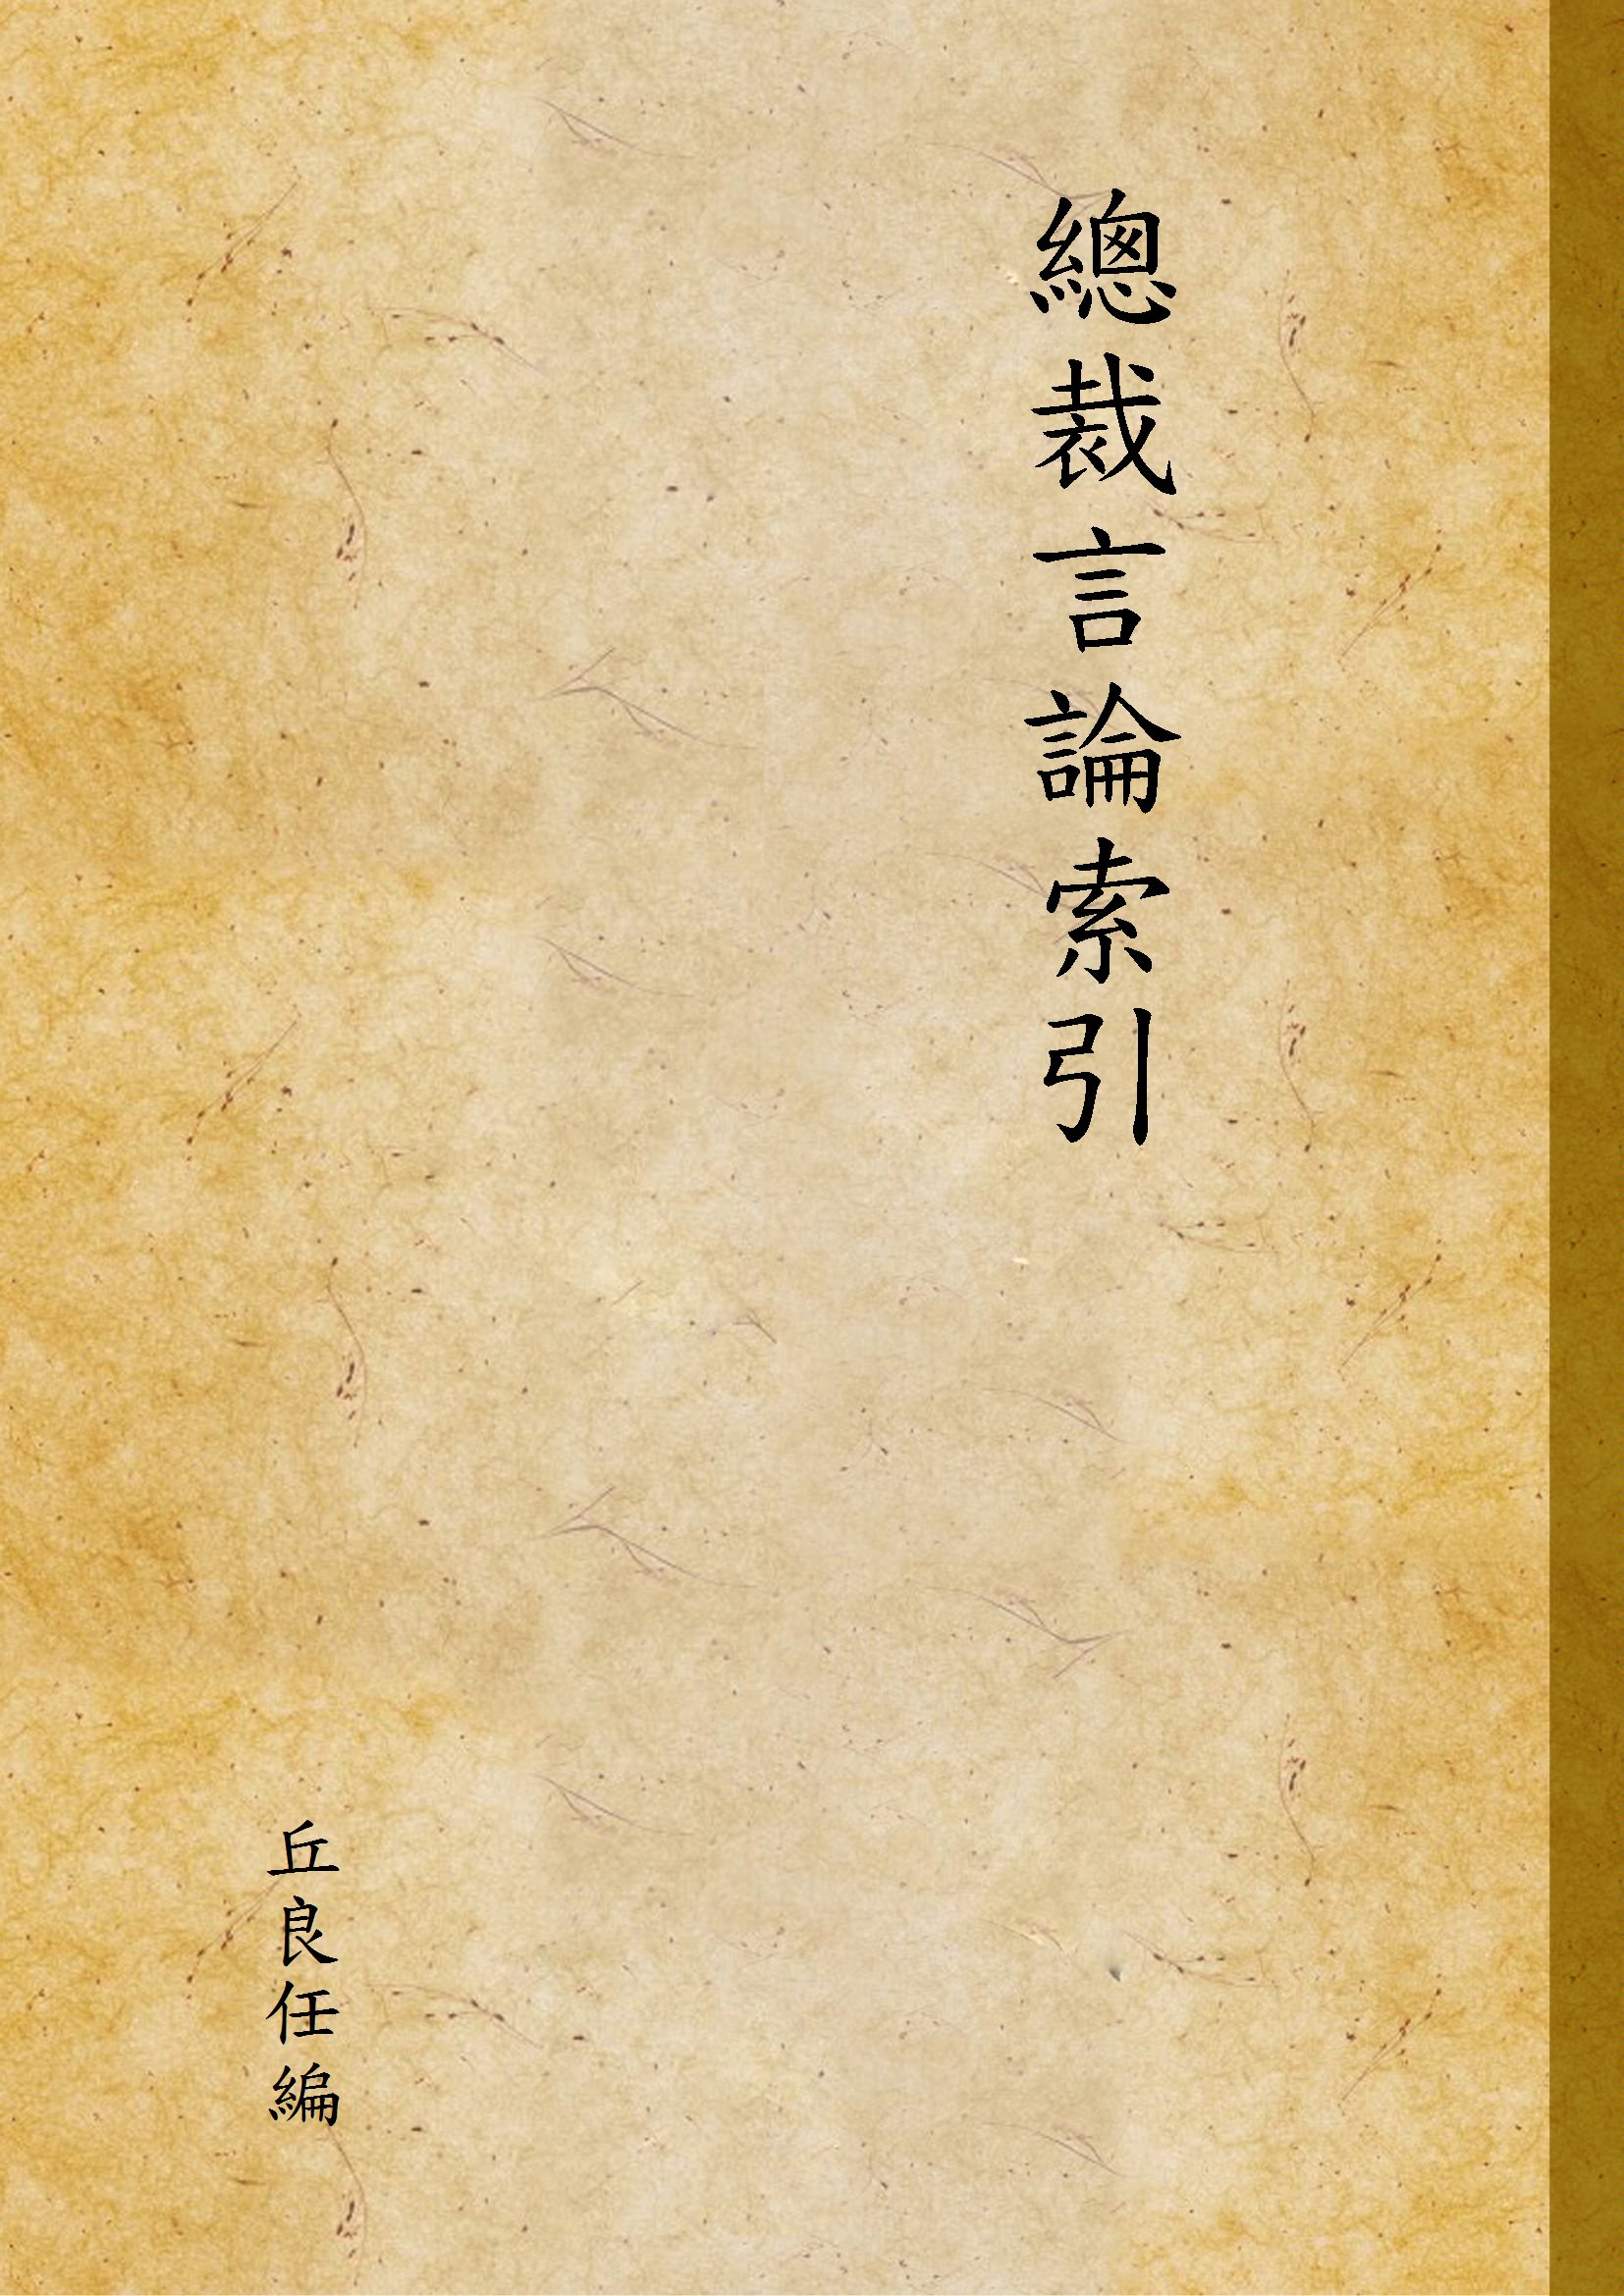 總裁言論索引
丘良任編